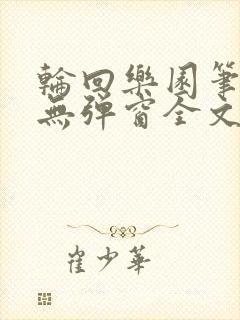 輪回樂園筆
無彈窗全文
崔少華